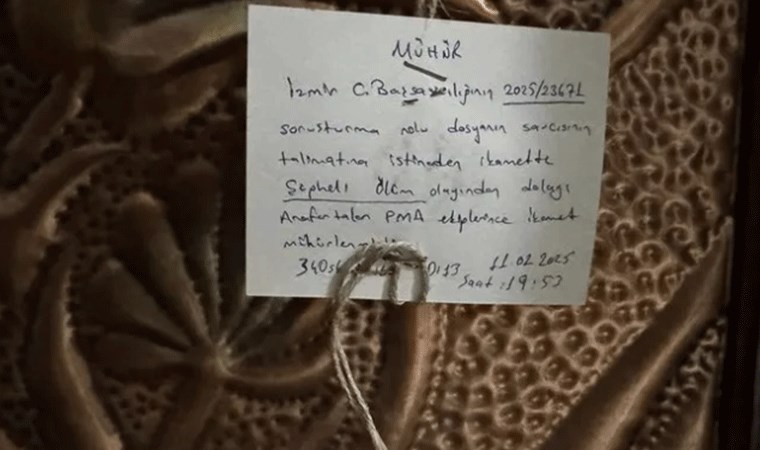 MÜHÜR
İzmir C. Başsavcılığının 2025/23671
soruşturma nolu dosyanın savcısının
talimatına istinaden ikamette
Şüpheli Ölüm olayından dolayı
Anafartalar PMA ekiplerince ikamet
11.02.2025
Saat :19:52